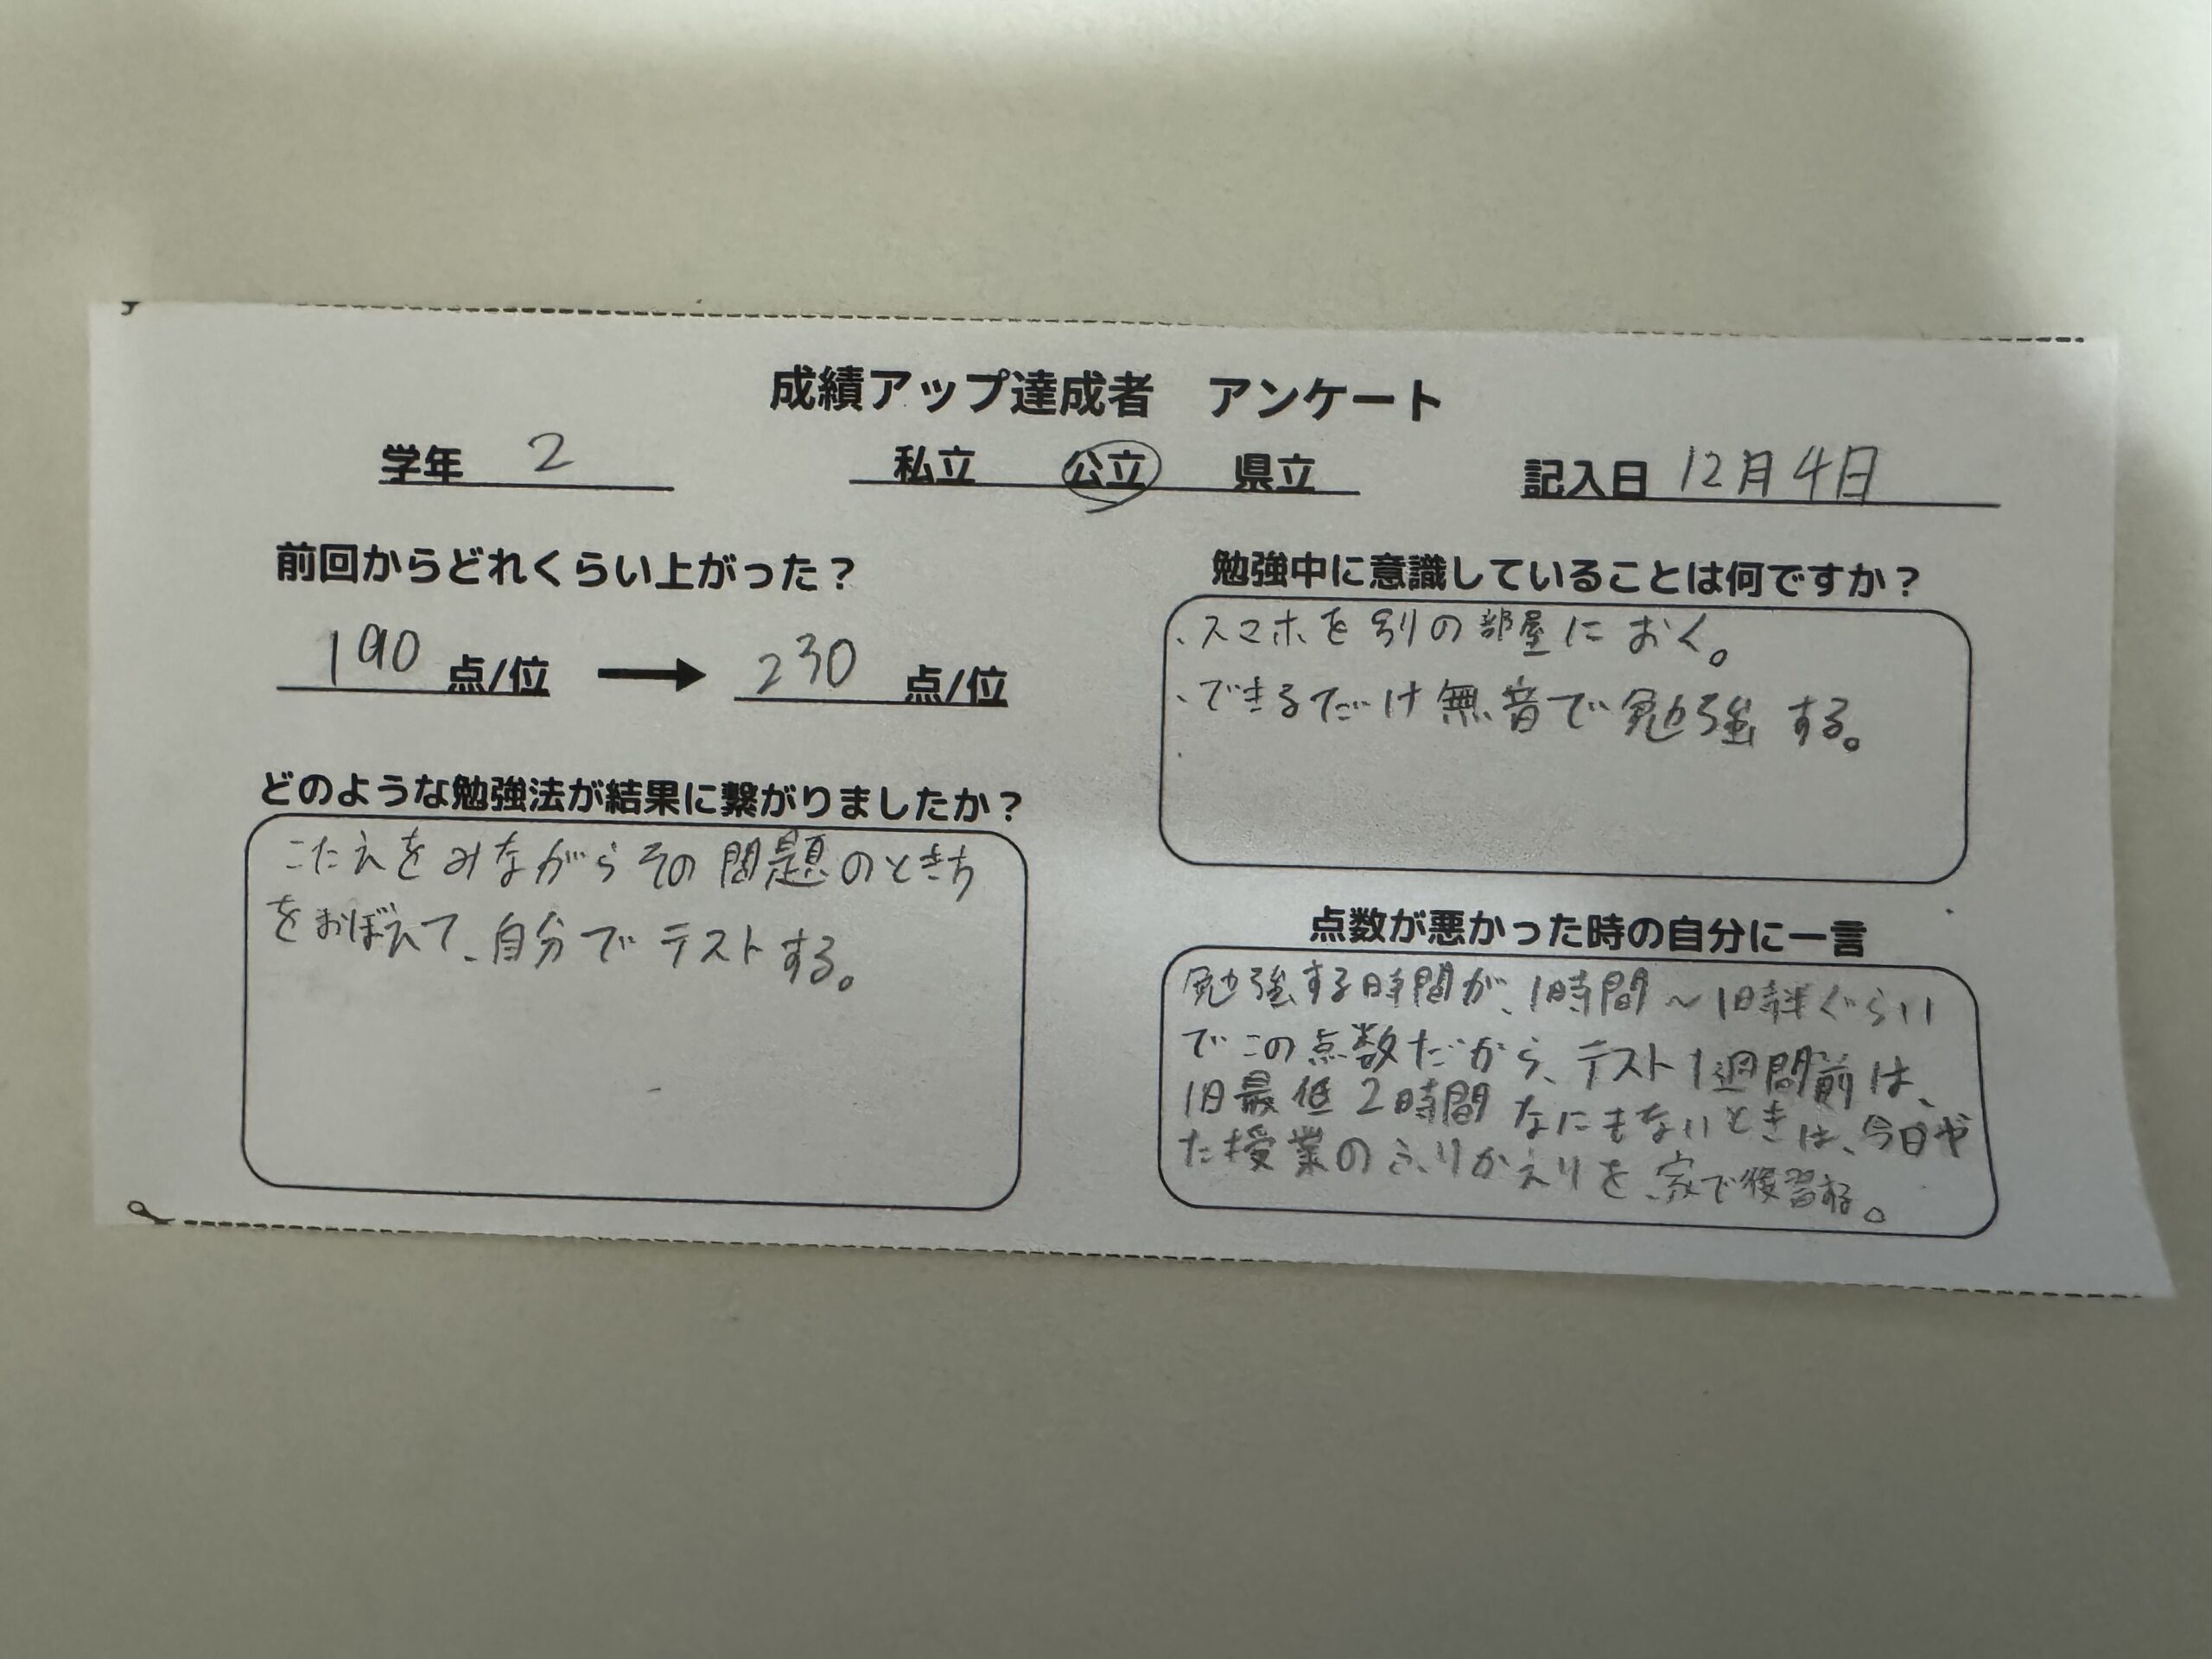 成績アップ達成者　アンケート
学年 2
私立 公立 県立
記入日 12月4日
前回からどれくらい上がった？
190 点/位 → 230 点/位
どのような勉強法が結果に繋がりましたか？
こたえをみながらその問題のときち
をおぼえて、自分でテストする。
勉強中に意識していることは何ですか？
、スマホを別の部屋におく。
、できるだけ無音で勉強する。
点数が悪かった時の自分に一言
勉強する時間が、1時間～1時半ぐらい
でこの点数だから、テスト1週間前は、
1日最低2時間なにもないときは、今日や
た授業のふりかえりを、家で復習する。